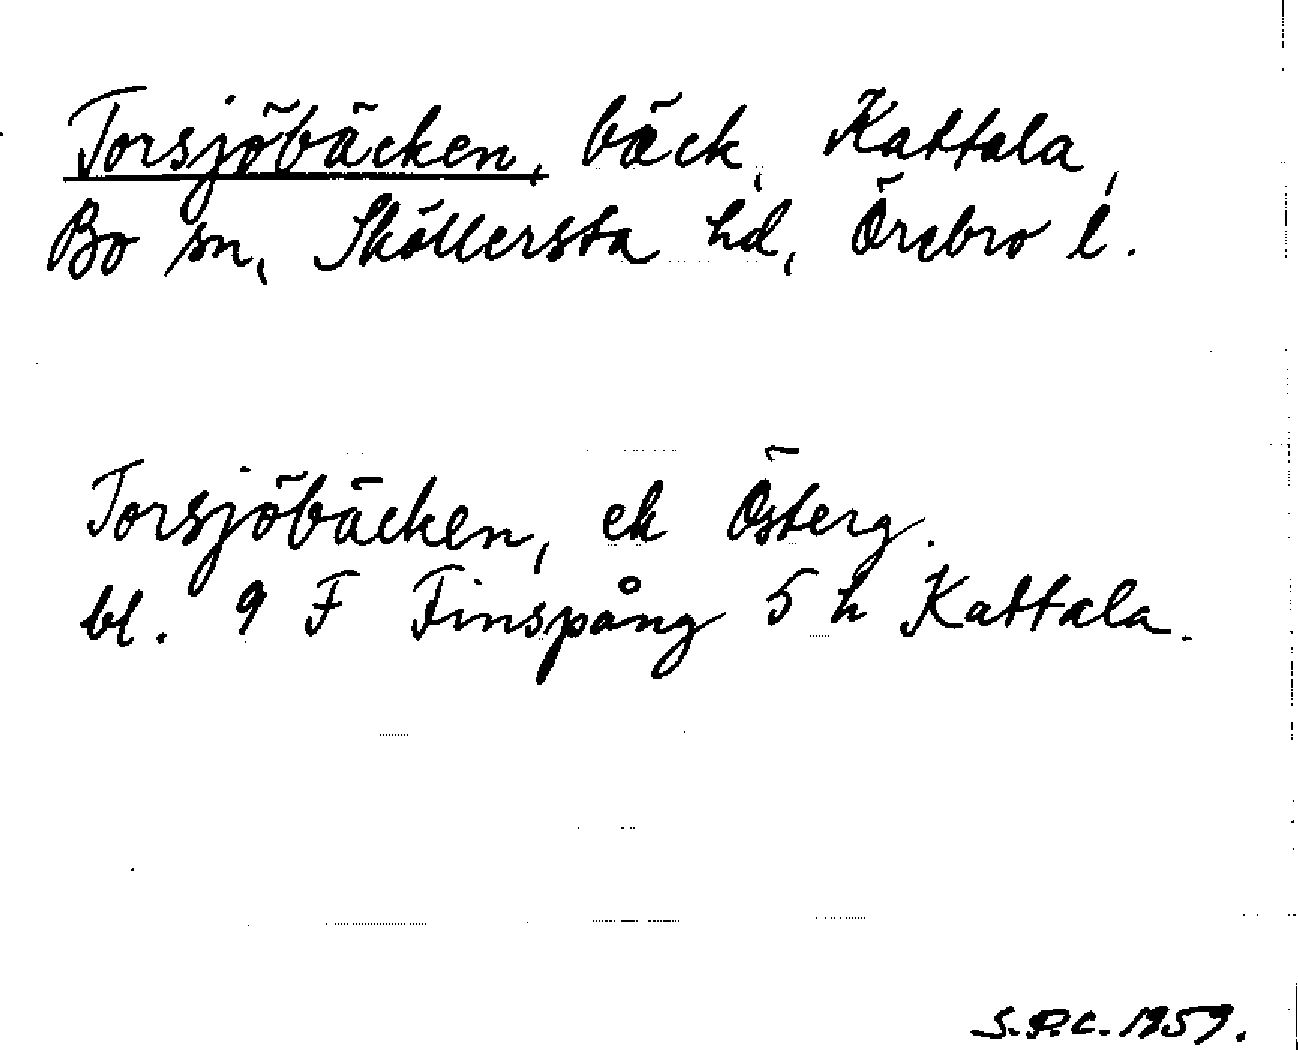 Torsjöbäcken, bäck, Kattala,
Bo sn, Sköllersta hd, Örebro l.
Torsjöbäcken, ek Österg.
bl. 9 F Finspång 5 h Kattala.
S.P.C. 1959.